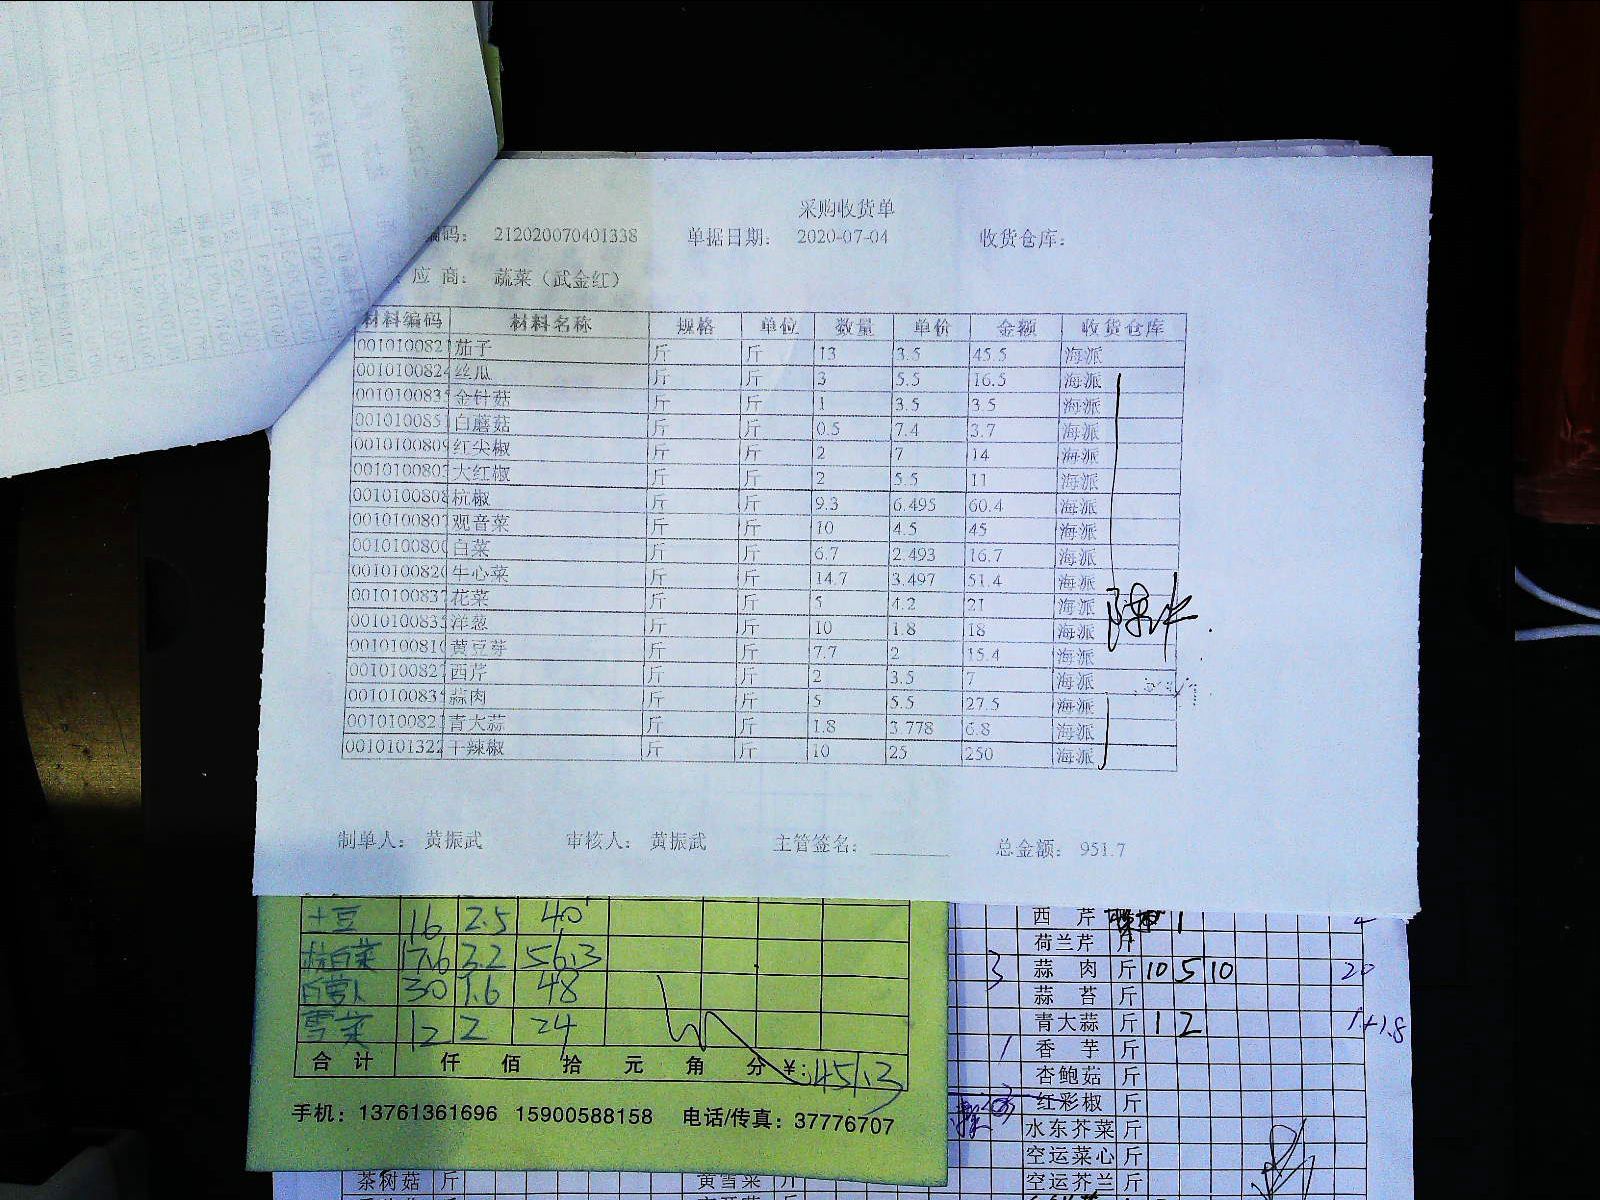 采购收货单
编码： 212020070401338 单据日期： 2020-07-04 收货仓库：
应 商： 蔬菜（武金红）
材料编码 材料名称 规格 单位 数量 单价 金额 收货仓库
001010082 茄子 斤 斤 13 3.5 45.5 海派
001010082 丝瓜 斤 斤 3 5.5 16.5 海派
001010083 金针菇 斤 斤 1 3.5 3.5 海派
001010085 白蘑菇 斤 斤 0.5 7.4 3.7 海派
001010080 红尖椒 斤 斤 2 7 14 海派
001010080 大红椒 斤 斤 2 5.5 11 海派
001010080 杭椒 斤 斤 9.3 6.495 60.4 海派
001010080 观音菜 斤 斤 10 4.5 45 海派
001010080 白菜 斤 斤 6.7 2.493 16.7 海派
001010082 牛心菜 斤 斤 14.7 3.497 51.4 海派
001010083 花菜 斤 斤 5 4.2 21 海派
001010083 洋葱 斤 斤 10 1.8 18 海派
001010081 黄豆芽 斤 斤 7.7 2 15.4 海派
001010082 西芹 斤 斤 2 3.5 7 海派
001010083 蒜肉 斤 斤 5 5.5 27.5 海派
001010082 青大蒜 斤 斤 1.8 3.778 6.8 海派
001010132 干辣椒 斤 斤 10 25 250 海派
制单人： 黄振武 审核人： 黄振武 主管签名： 总金额： 951.7
土豆 16 2.5 40
17.6 3.2 56.3
白萝卜 30 1.6 48
雪菜 12 2 24
合 计 仟 佰 拾 元 角 分 ¥:
手机：13761361696 15900588158 电话/传真：37776707
西 芹 1
荷兰芹 斤
3 蒜 肉 斤 10 5 10 20
蒜 苔 斤
青大蒜 斤 1 2 1+1.8
香 芋 斤
杏鲍菇 斤
红彩椒 斤
水东芥菜 斤
空运菜心 斤
空运芥兰 斤
茶树菇 斤 黄雪菜 斤